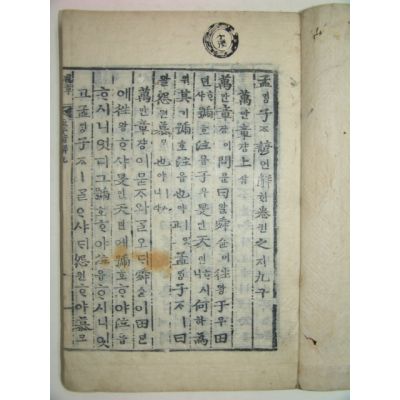 孟ᄆᆡᆼ子ᄌᆞ諺언解ᄒᆡ卷권之지九구
萬만章쟝上샹
萬만章쟝이問문曰왈舜슌이往왕于우田뎐
ᄒᆞ샤號호泣읍于우旻민天텬ᄒᆞ시니何하爲
위其기號호泣읍也야ㅣ잇고孟ᄆᆡᆼ子ᄌᆞㅣ曰
왈怨원慕모也야ㅣ시니라
萬만章쟝이묻ᄌᆞ와ᄀᆞᆯ오ᄃᆡ舜슌이田뎐
애往왕ᄒᆞ샤旻민天텬애號호ᄒᆞ야泣읍
ᄒᆞ시니엇디그號호ᄒᆞ야泣읍ᄒᆞ시니잇
고孟ᄆᆡᆼ子ᄌᆞㅣᄀᆞᆯᄋᆞ샤ᄃᆡ怨원ᄒᆞ야慕모